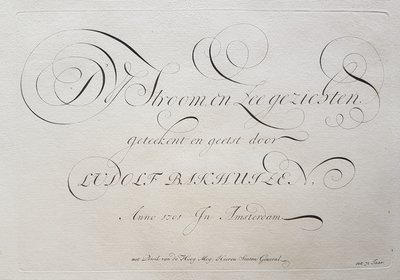 D'Y Stroom, en Zee gezichten
geteekent en geetst door
LUDOLF BAKHUIZEN,
Anno 1701 In Amsterdam
met Previl. van de Hoog Mog. Heeren Staaten Generael